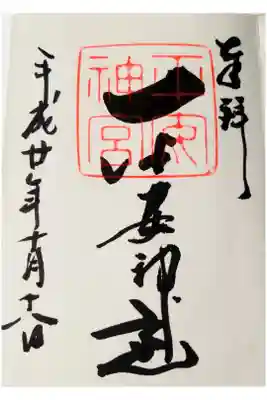 奉拝
平安神宮
平安神宮
平成廿年十月十八日